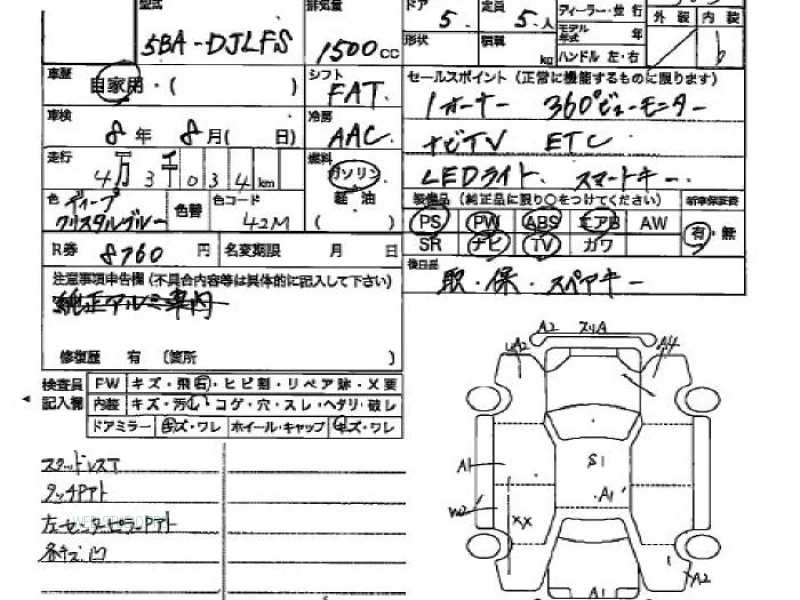 型式 排気量 ドア 定員 ディーラー・並行
5BA-DJLFS 1500cc 5. 5.人 外装 内装
形状 積載 kg モデル年式 年
ハンドル 左・右
車歴 自家用・( ) シフト FAT. セールスポイント (正常に機能するものに限ります)
車検 8年 8月( 日) 冷房 AAC. 1オーナー 360°ビューモニター
ナビTV ETC
走行 4万3千034km 燃料 ガソリン LEDライト. スマートキー.
軽油 ( )
色 ディープクリスタルブルー 色替 色コード 42M
装備品 (純正品に限り○をつけてください) 新車保証書
PS PW ABS エアB AW 有・無
SR ナビ TV カワ
R券 8760円 名変期限 月 日
後日品 取・保・スペアキー
注意事項申告欄 (不具合内容等は具体的に記入して下さい)
純正アルミ車内
修復歴 有 〔箇所 〕
検査員記入欄 FW キズ・飛石・ヒビ割・リペア跡・X要
内装 キズ・汚れ・コゲ・穴・スレ・ヘタリ・破レ
ドアミラー キズ・ワレ ホイール・キャップ キズ・ワレ
スタッドレスT
タッチPアト
左センターピラーPアト
各キズ.凹
A2 スリA
A4
S1
A1
A1
W2
XX
A2
A1